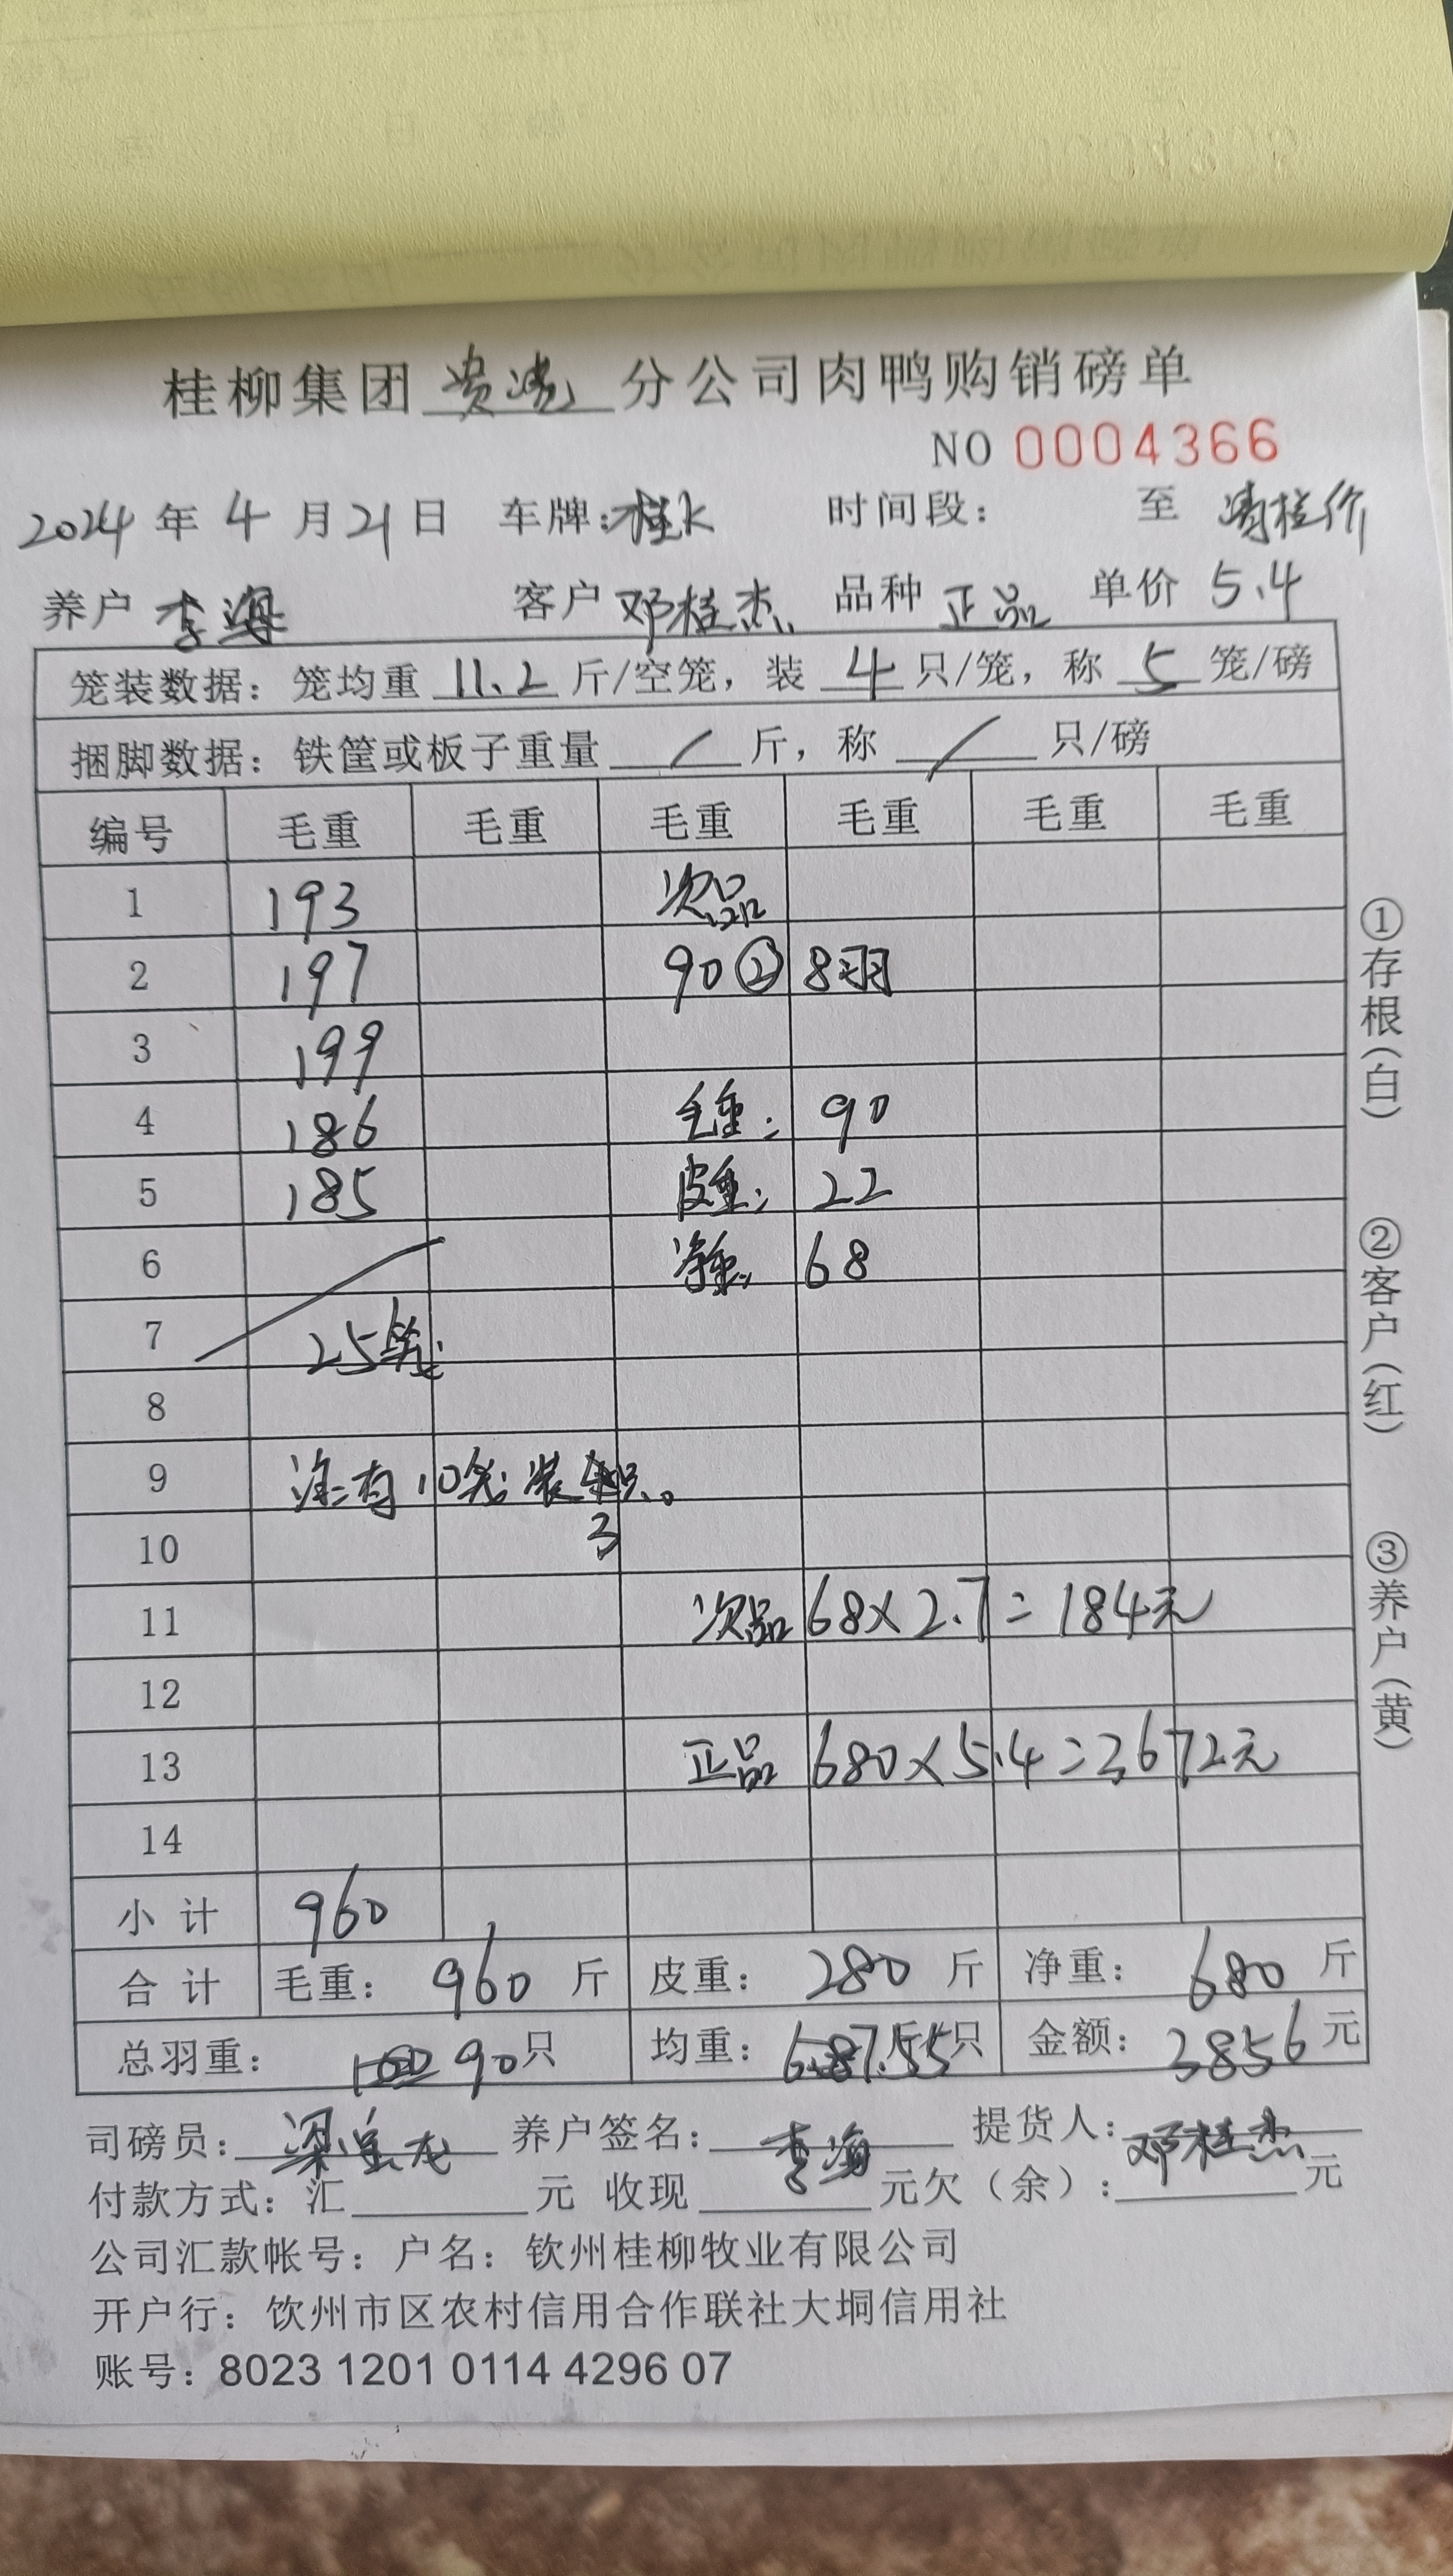 桂柳集团贵港分公司肉鸭购销磅单
NO 0004366
2024年4月21日 车牌:桂K 时间段: 至
养户 李海 客户 邓桂杰 品种 正品 单价 5.4
笼装数据: 笼均重 11.2 斤/空笼, 装 4 只/笼, 称 5 笼/磅
捆脚数据: 铁筐或板子重量 / 斤, 称 / 只/磅
编号 毛重 毛重 毛重 毛重 毛重 毛重
1 193 次品
2 197 90② 8羽
3 199
4 186 毛重: 90
5 185 皮重: 22
6 净重: 68
7 25笼
8
9 注:有10笼装 只。
10 3
11 次品 68×2.7=184元
12
13 正品 680×5.4=3672元
14
小计 960
合计 毛重: 960 斤 皮重: 280 斤 净重: 680 斤
总羽重: 90只 均重: 7.55 只 金额: 3856 元
司磅员: 养户签名: 李海 提货人: 邓桂杰
付款方式: 汇 元 收现 元欠(余): 元
公司汇款帐号: 户名: 钦州桂柳牧业有限公司
开户行: 饮州市区农村信用合作联社大垌信用社
账号: 8023 1201 0114 4296 07
①存根(白)
②客户(红)
③养户(黄)